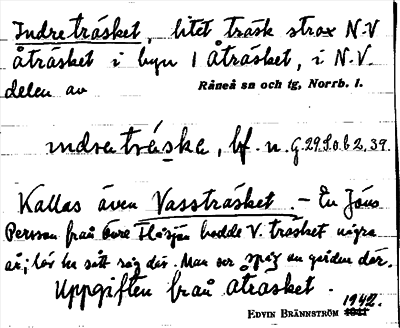 Indreträsket, litet träsk strax N.V
åträsket i byn 1 Åträsket, i N.V.
delen av Råneå sn och tg, Norrb. l.
indreträske, bf. n.
Kallas även Vassträsket. – En Jöns
Persson från Övre Flåsjön bodde V. träsket några
år, lär ha sått råg där. Man ser spår av gården där.
Uppgiften från Åträsket.
1942.
EDVIN BRÄNNSTRÖM